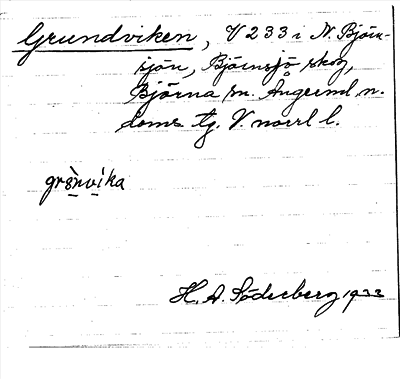 Grundviken, V 233 i N. Björn-
sjön, Björnsjö skog,
Björna sn. Ångerml. n.
doms tg. V. norrl l.
grs̀nvíka
H. A. Söderberg 1933